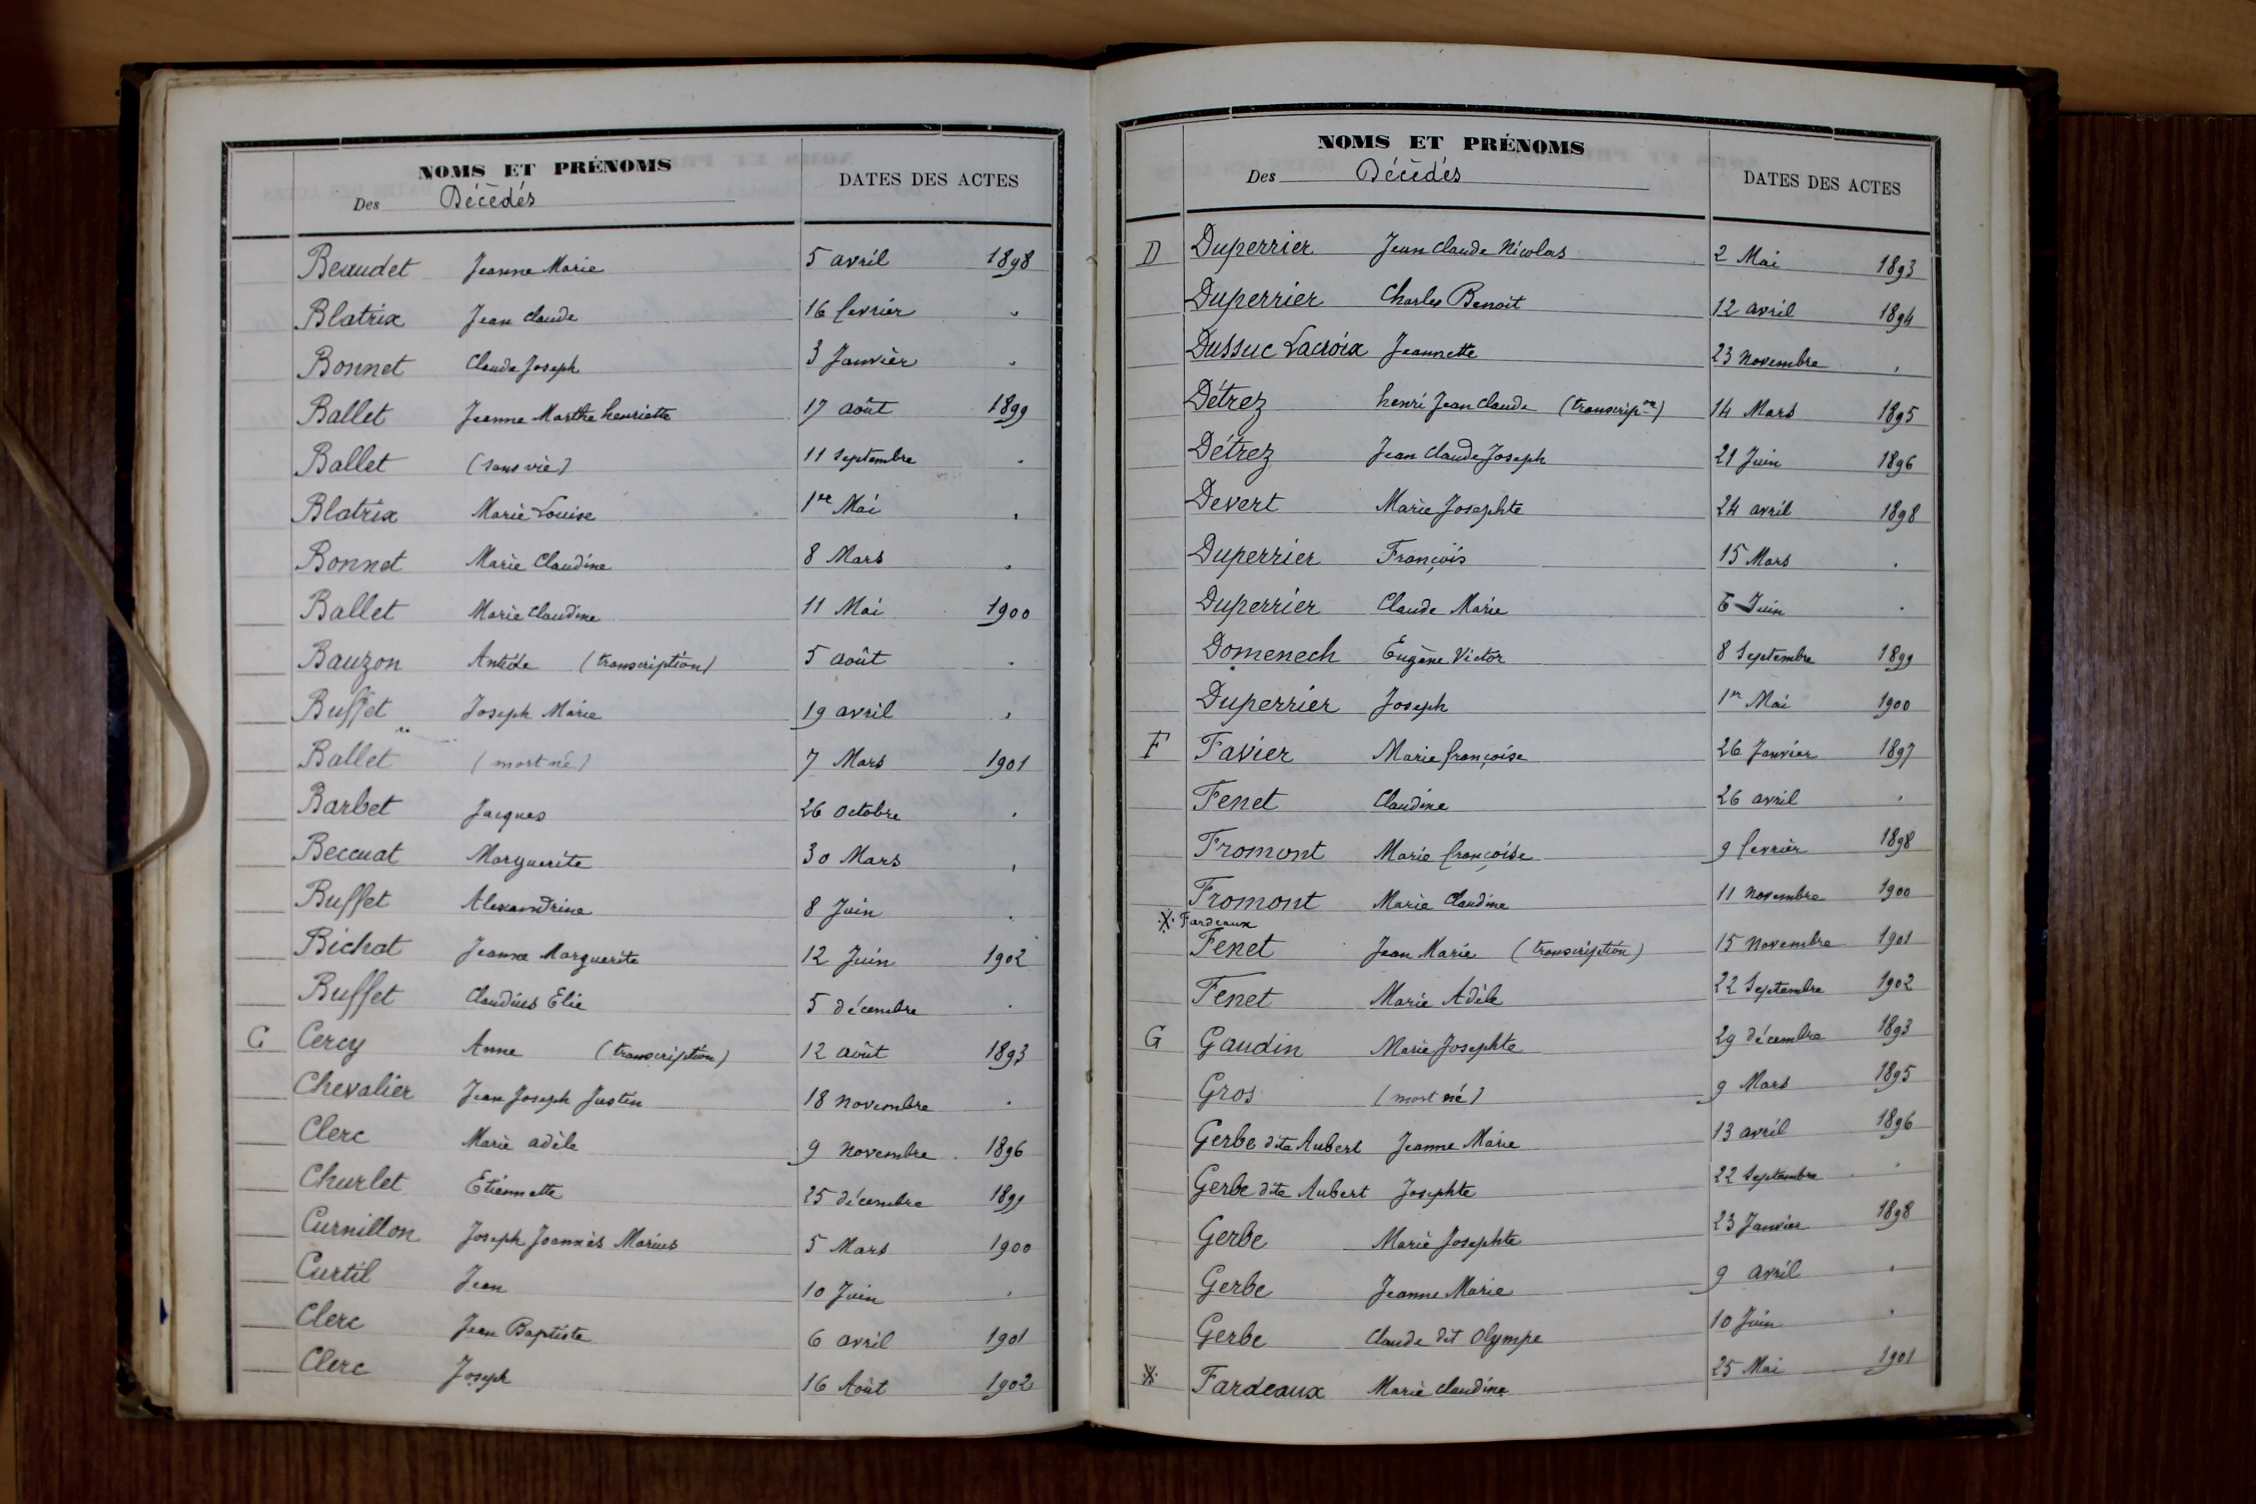 NOMS ET PRÉNOMS
Des Décédés
DATES DES ACTES
Beaudet Jeanne Marie 5 avril 1898
Blatrix Jean Claude 16 fevrier "
Bonnet Claude Joseph 3 Janvier "
Ballet Jeanne Marthe henriette 17 août 1899
Ballet (sans vie) 11 Septembre "
Blatrix Marie Louise 1er Mai "
Bonnet Marie Claudine 8 Mars "
Ballet Marie Claudine 11 Mai 1900
Bauzon Antide (transcription) 5 août "
Buffet Joseph Marie 19 avril "
Ballet (mort né) 7 Mars 1901
Barbet Jacques 26 Octobre "
Beccuat Marguerite 30 Mars "
Buffet Alexandrine 8 Juin "
Bichat Jeanne Marguerite 12 Juin 1902
Buffet Claudius Elie 5 décembre "
C Cercy Anne (transcription) 12 août 1893
Chevalier Jean Joseph Justin 18 novembre "
Clerc Marie adèle 9 novembre 1896
Churlet Etiennette 25 décembre 1899
Curnillon Joseph Joannès Marius 5 Mars 1900
Curtil Jean 10 Juin "
Clerc Jean Baptiste 6 avril 1901
Clerc Joseph 16 Août 1902
NOMS ET PRÉNOMS
Des Décédés
DATES DES ACTES
D Duperrier Jean Claude Nicolas 2 Mai 1893
Duperrier Charles Benoit 12 avril 1894
Dussuc Lacroix Jeannette 23 novembre "
Détrez henri Jean Claude (transcripon) 14 Mars 1895
Détrez Jean Claude Joseph 21 Juin 1896
Devert Marie Josephte 24 avril 1898
Duperrier François 15 Mars "
Duperrier Claude Marie 6 Juin "
Domenech Eugène Victor 8 Septembre 1899
Duperrier Joseph 1er Mai 1900
F Favier Marie françoise 26 Janvier 1897
Fenet Claudine 26 avril "
Fromont Marie françoise 9 fevrier 1898
Fromont Marie Claudine 11 novembre 1900
※ Fardeaux
Fenet Jean Marie (transcription) 15 novembre 1901
Fenet Marie Adèle 22 Septembre 1902
G Gaudin Marie Josephte 29 décembre 1893
Gros (mort né) 9 Mars 1895
Gerbe dite Aubert Jeanne Marie 13 avril 1896
Gerbe dite Aubert Josephte 22 Septembre "
Gerbe Marie Josephte 23 Janvier 1898
Gerbe Jeanne Marie 9 avril "
Gerbe Claude dit Olympe 10 Juin "
※ Fardeaux Marie Claudine 25 Mai 1901